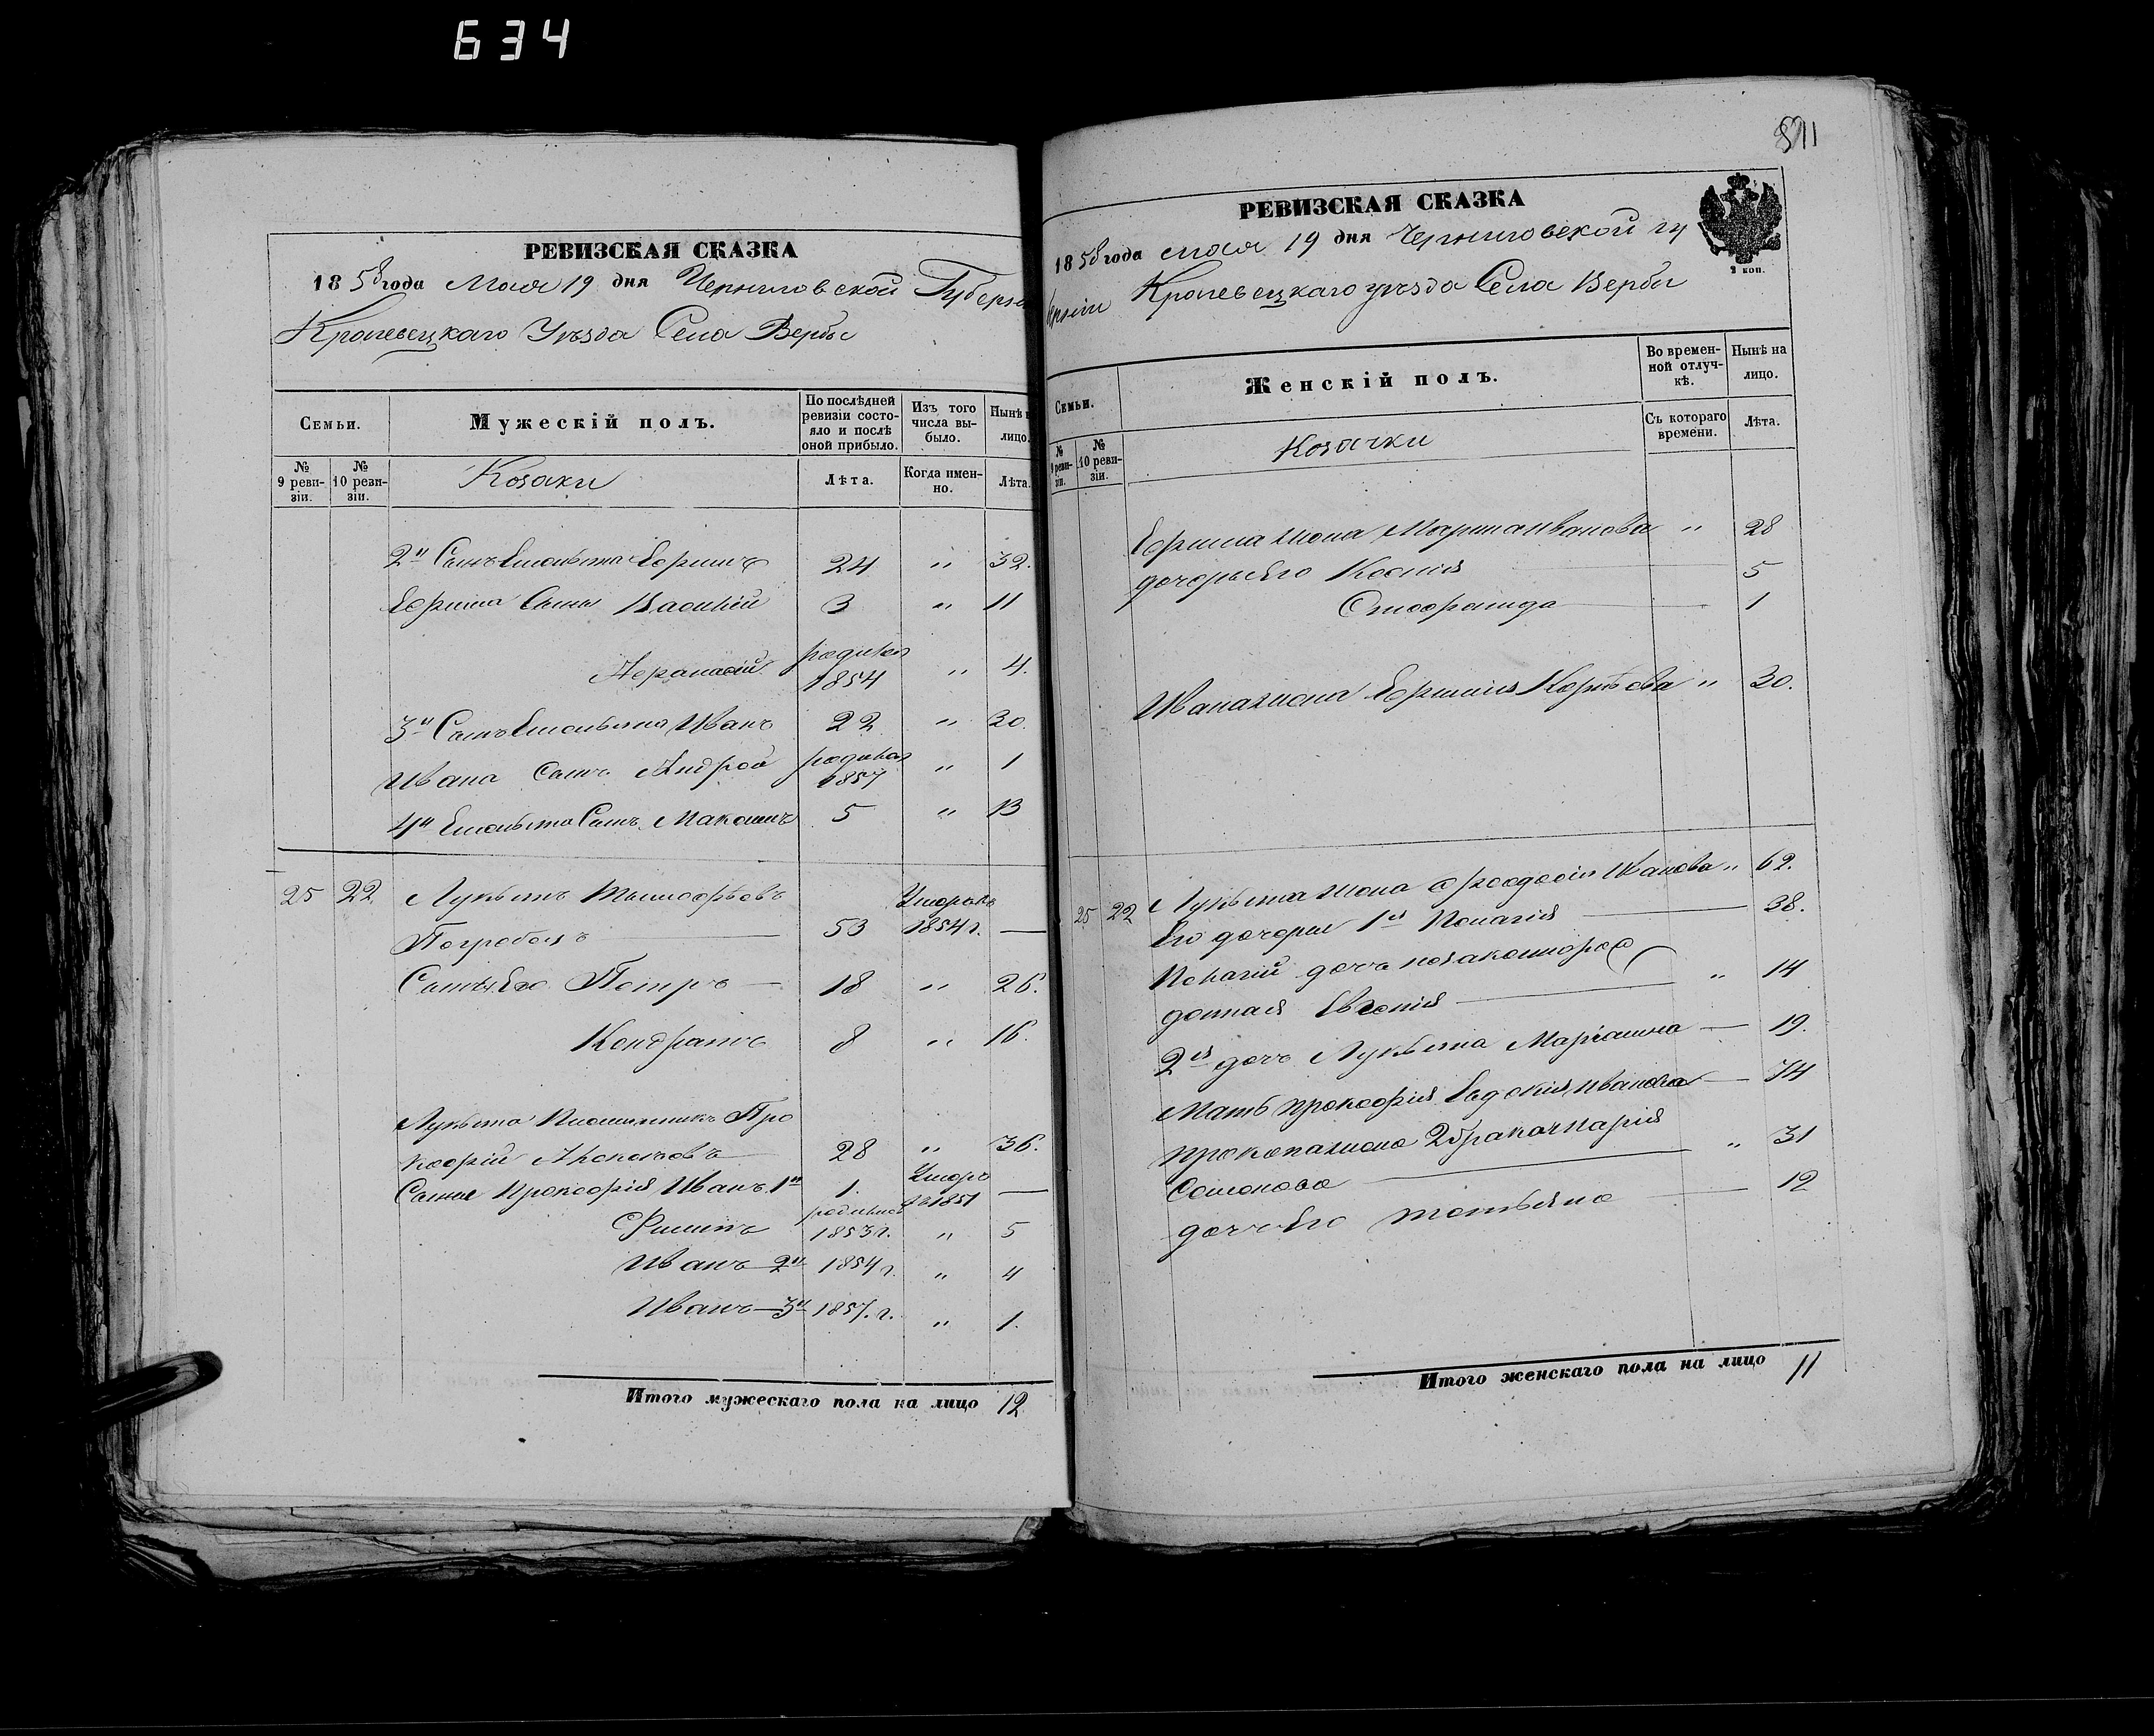 634
РЕВИЗСКАЯ СКАЗКА
1858 года Мая 19 дня Черниговской Губерні
Кролевецкаго Уѣзда Села Вербы
Семьи.
Мужескій полъ.
По послѣдней ревизіи состояло и послѣ оной прибыло.
Изъ того числа выбыло.
Нынѣ н лицо.
№ 9 ревизіи.
№ 10 ревизіи.
Козаки
Лѣта.
Когда именно.
Лѣта.
2й Сынъ Емельяна Ефимъ 24 " 32.
Ефима Сыны Василій 3 " 11
Афанасій родился 1854 " 4.
3й Сынъ Емельяна Иванъ 22 " 30.
Ивана Сынъ Андрей родился 1857 " 1
4й Емельяна Сынъ Максимъ 5 " 13
25 22 Лукьянъ Тимофѣевъ
Погребелъ — 53 Умеръ 1854 г. —
Сынъя Его Петръ — 18 " 26.
Кондратъ 8 " 16.
Лукьяна Племянникъ Про
кофій 28 " 36.
Сыные Прокофія Иванъ 1й 1. Умеръ 1851 —
Филипъ родился 1853 г. " 5
Иванъ — 2й 1854 г. " 4
Иванъ — 3й 1857. г. " 1.
Итого мужескаго пола на лицо 12
811
РЕВИЗСКАЯ СКАЗКА
1858 года мая 19 дня Черниговской гу
берніи Кролевецкаго уѣзда Села Верби
2 коп.
Семьи.
Женскій полъ.
Во временной отлучкѣ.
Нынѣ на лицо.
№ 9 ревизіи.
№ 10 ревизіи.
Козачки
Съ котораго времени.
Лѣта.
Ефима жена Марина Иванова " 28
дочерье Его Ксенія 5
1
Ивана жена Ефимія Карпова " 30.
25 22 Лукьяна жена Феодосія Иванова " 62.
Его дочерые 1я Пелагія — 38.
Пелагіи дочь незаконнорож
денная Евгенія — " 14
2я дочь Лукьяна Маріамна — 19.
Мать Прокофія Евдокія Иванова — 74
Прокопа жена 2 брака Марія
Семенова — " 31
дочь Его Татьяна — 12
Итого женскаго пола на лицо 11